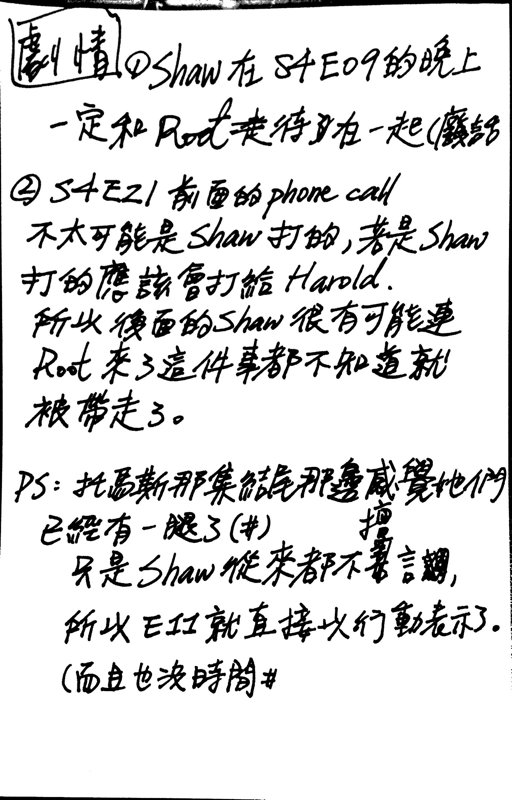 劇情 ① Shaw 在 S4E09的晚上
一定和 Root 走待在一起(廢話
② S4E21 前面的 phone call
不太可能是 Shaw 打的,若是 Shaw
打的應該會打給 Harold.
所以後面的 Shaw 很有可能連
Root 來了這件事都不知道就
被帶走了。
PS: 托馬斯那集結尾那邊感覺她們
已經有一腿了(#)
只是 Shaw 從來都不擅言調,
所以 E11 就直接以行動表示了。
(而且也沒時間#